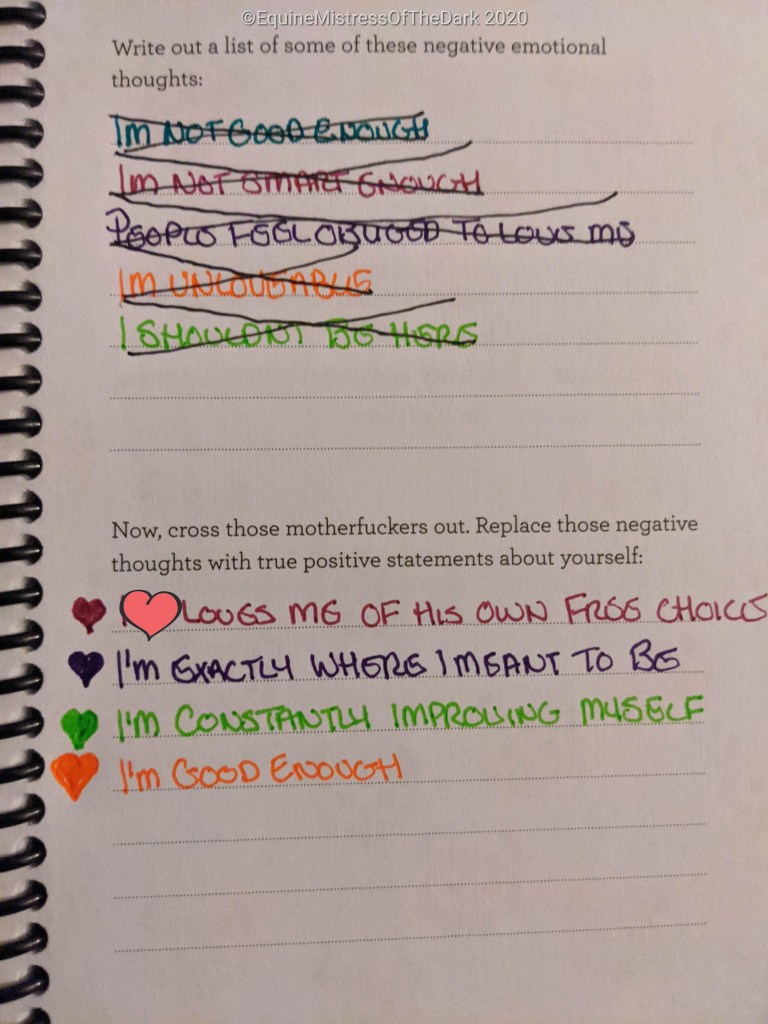 ©EquineMistressOfTheDark 2020
Write out a list of some of these negative emotional
thoughts:
I'm NOT GOOD ENOUGH
I'm NOT SMART ENOUGH
PEOPLE FEEL OBLIGED TO LOVE ME
I'm UNLOVEABLE
I SHOULDN'T BE HERE
Now, cross those motherfuckers out. Replace those negative
thoughts with true positive statements about yourself:
LOVES ME OF HIS OWN FREE CHOICE
I'm EXACTLY WHERE I MEANT TO BE
I'm CONSTANTLY IMPROVING MYSELF
I'm GOOD ENOUGH